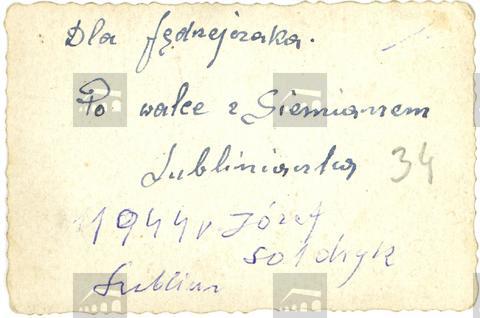 Dla Jędrejczaka.
Po walce z Siemianem
Lublinianka 34
1944 r Józef
Sołdryk
Lublin